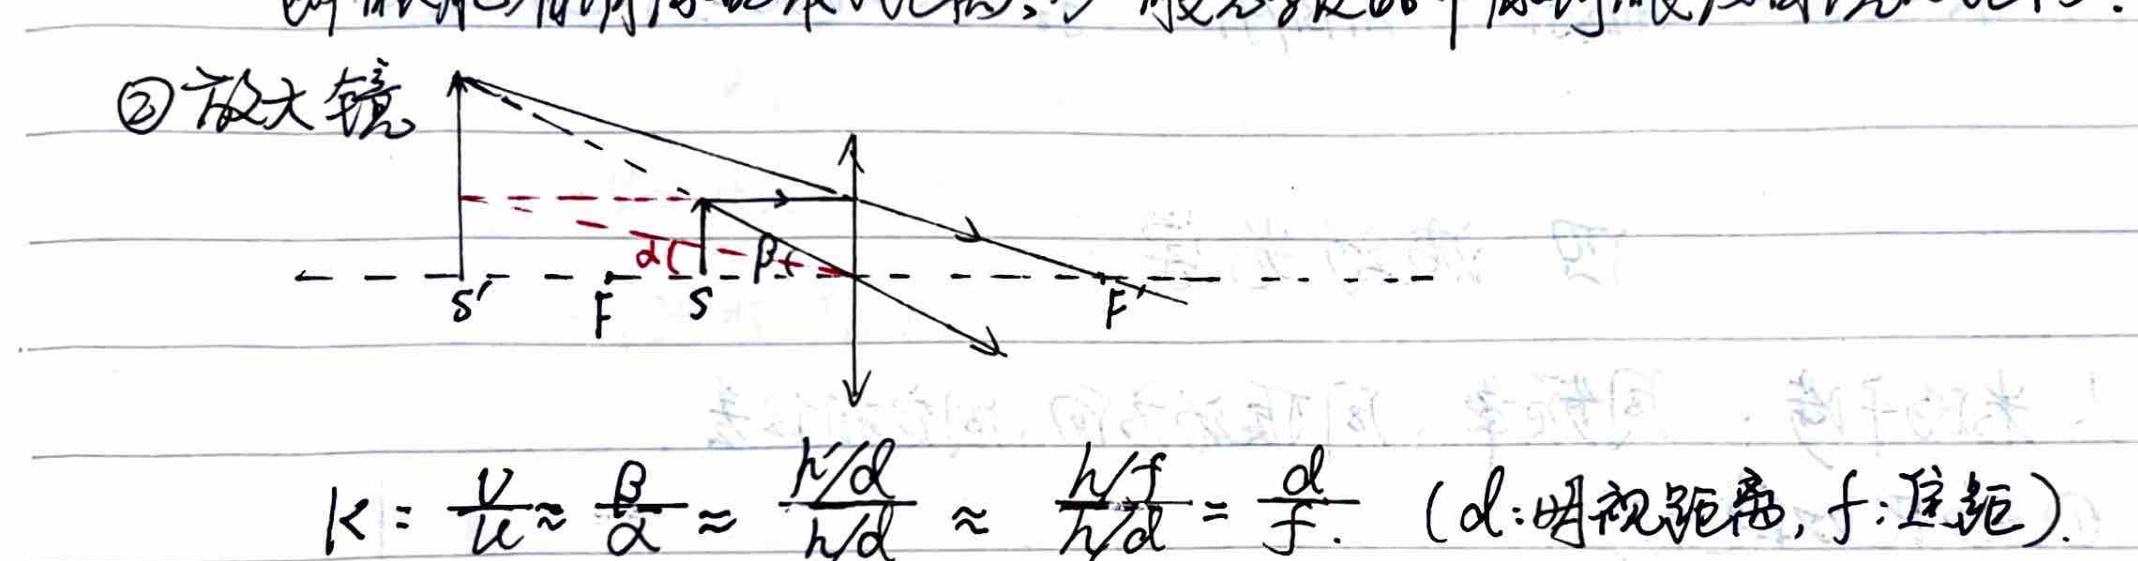 ②放大镜
α β
S' F S F'
K = v/u ≈ β/α ≈ (h'/d)/(h/d) ≈ (h/f)/(h/d) = d/f. (d:明视距离, f:焦距).